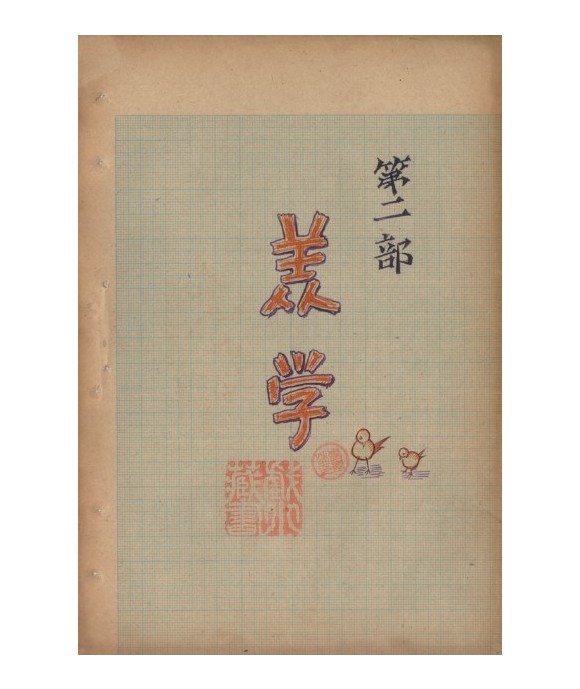 第二部
美学
藏書